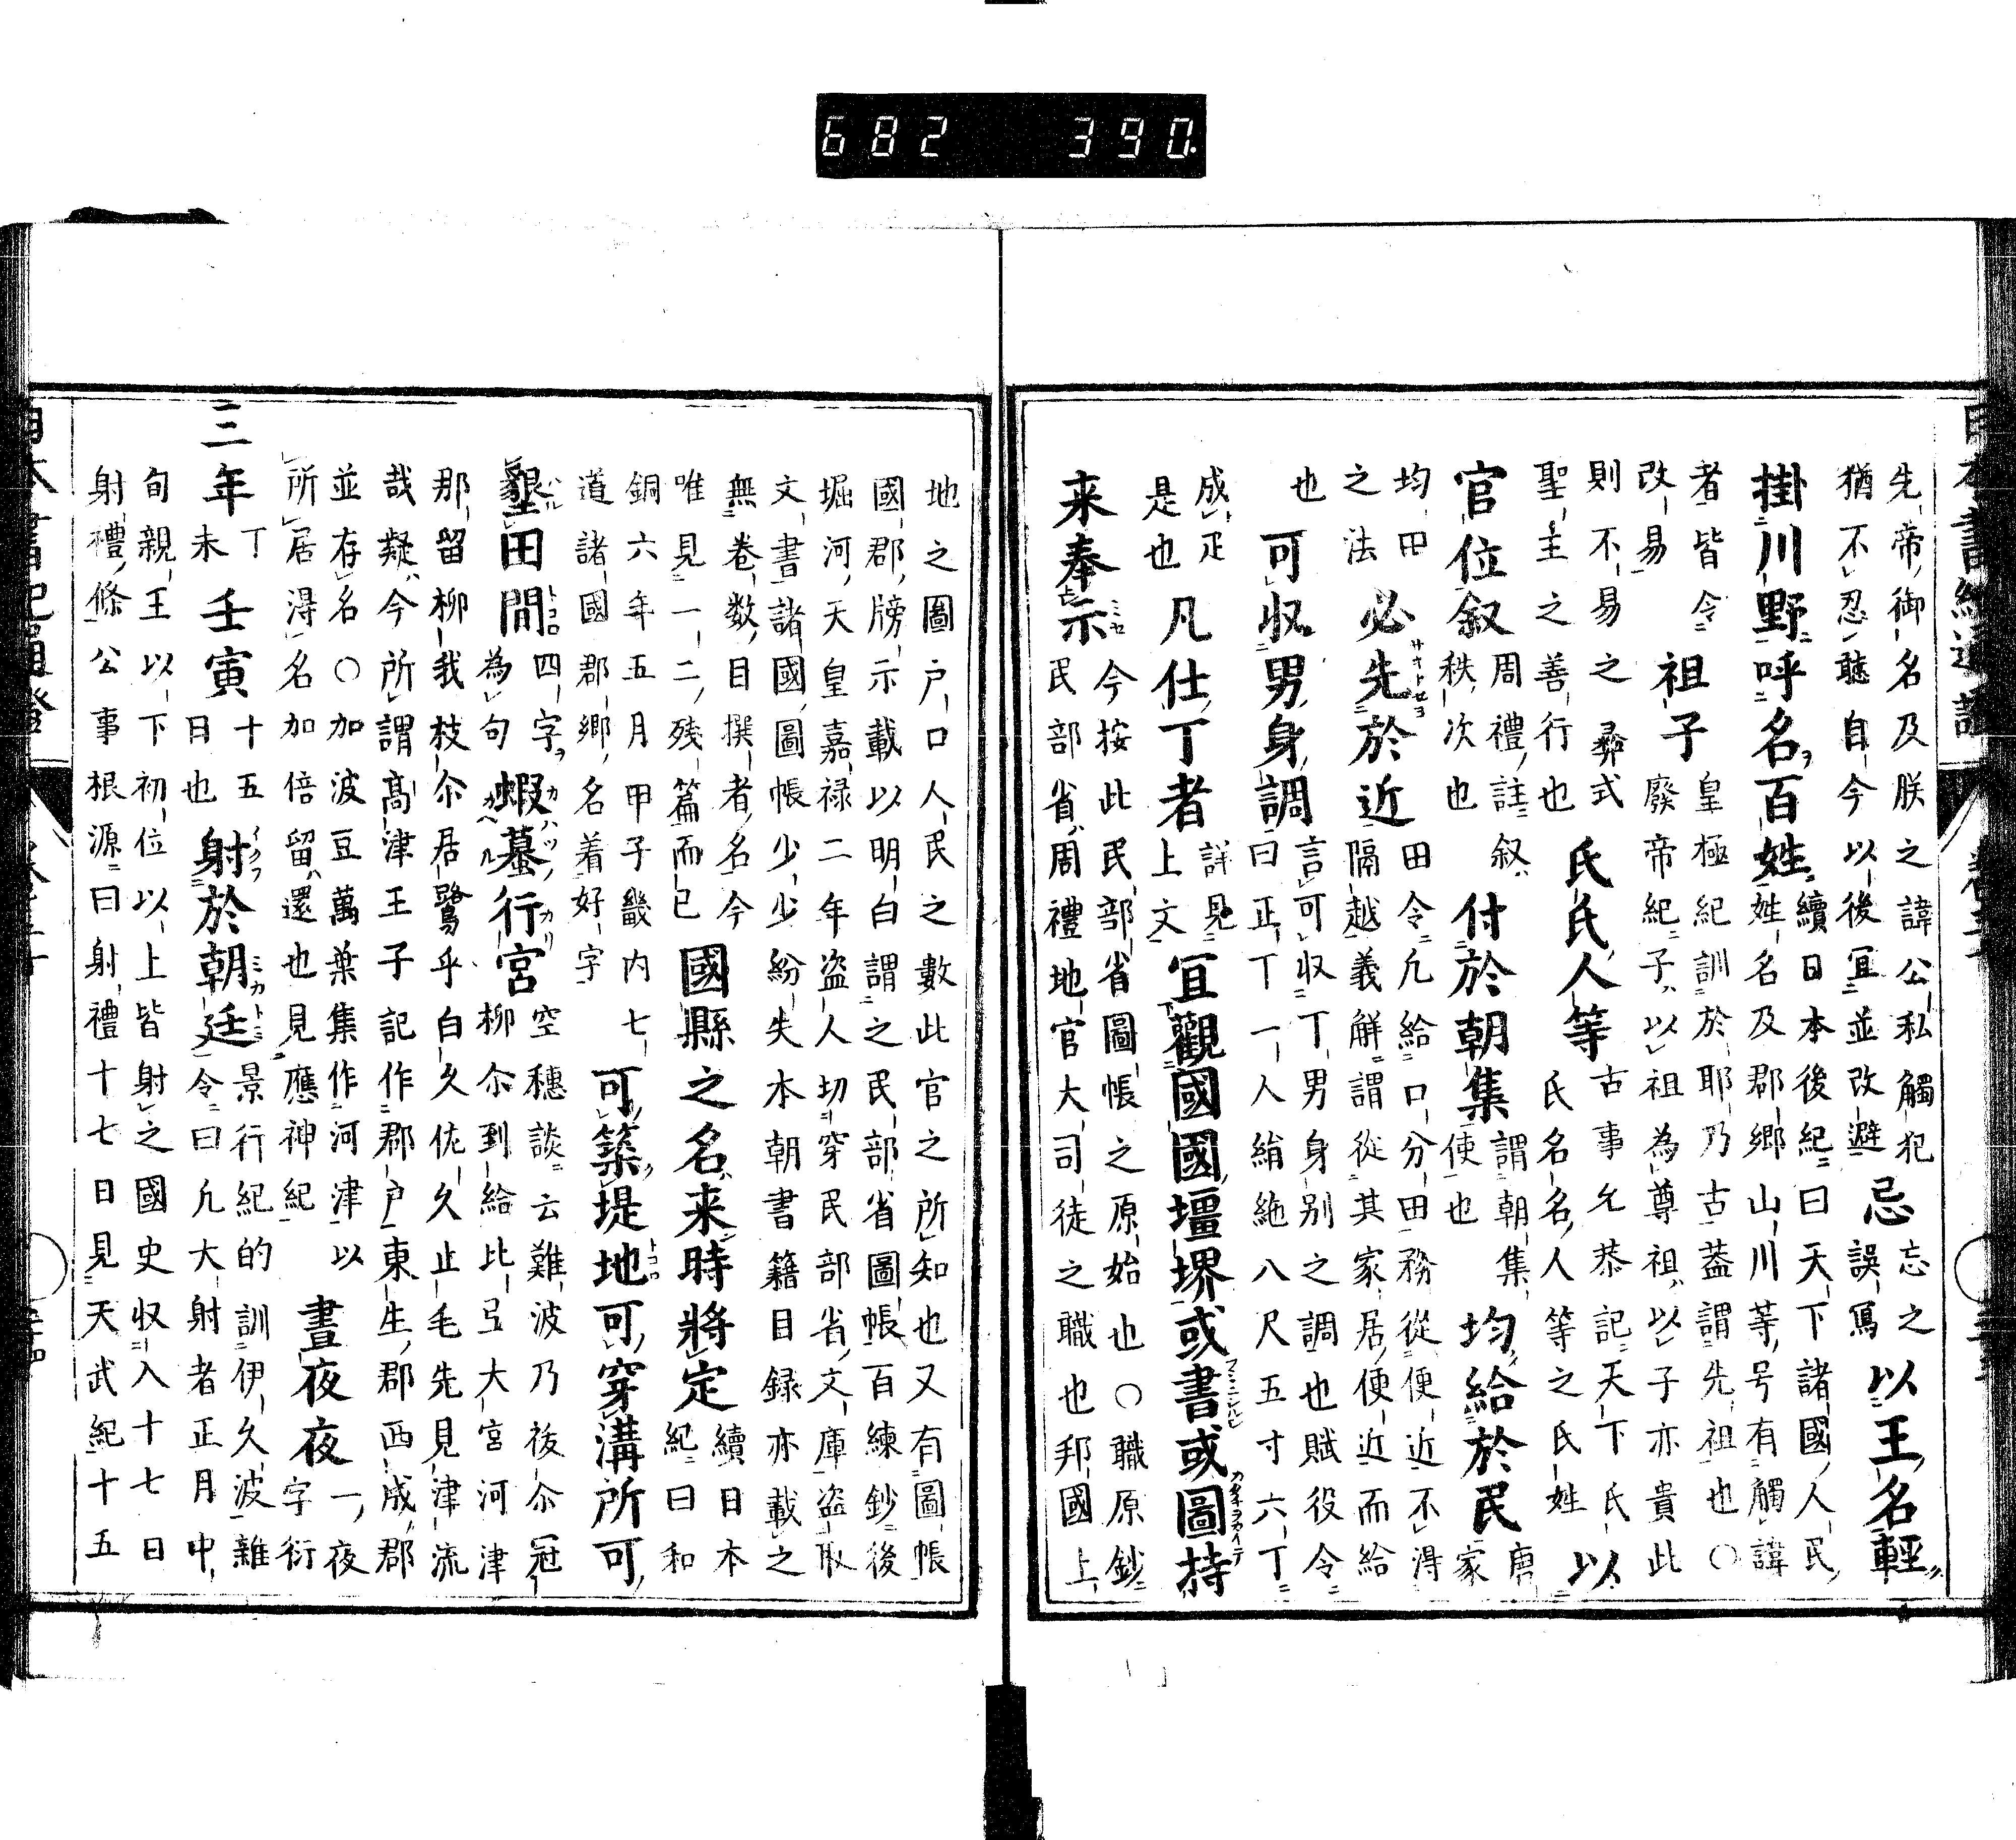 682 390
先帝御名及朕之諱公私觸犯
猶不忍聽自今以後宜並改避
忌
忘之
誤寫
以王名輕
掛川野呼名百姓
續日本後紀曰天下諸國人民
姓名及郡郷山川等号有觸諱
者皆令
改易
祖子
皇極紀訓於耶乃古葢謂先祖也○
廢帝紀子以祖為尊祖以子亦貴此
則不易之彛式
聖主之善行也
氏氏人等
古事允恭記天下氏
氏名名名人等之氏姓
以
官位叙
周禮註叙
秩次也
付於朝集
謂朝集
使也
均給於民
唐
家
均田
之法
必先於近
田令凡給口分田務從便近不得
隔越義解謂從其家居便近而給
也
可収男身調
言可収丁男身別之調也賦役令
曰正丁一人絹絁八尺五寸六丁
成疋
是也
凡仕丁者
詳見
上文
宜觀國國壃堺或書或圖持
来奉示
今按此民部省圖帳之原始也○職原鈔
民部省周禮地官大司徒之職也邦國上
地之圖戸口人民之數此官之所知也又有圖帳
國郡牓示載以明白謂之民部省圖帳百練鈔後
堀河天皇嘉禄二年盗人切穿民部省文庫盗取
文書諸國圖帳少少紛失本朝書籍目録亦載之
無卷数目撰者名今
唯見一二残篇而已
國縣之名来時將定
續日本
紀曰和
銅六年五月甲子畿内七
道諸國郡郷名着好字
可築堤地可穿溝所可
墾田間
四字
為句
蝦蟇行宮
空穗談云難波乃後尓冠
柳尓到給比弖大宮河津
那留柳我枝尓居鷺乎白久佐久止毛先見津流
哉疑今所謂髙津王子記作郡戸東生郡西成郡
並存名○加波豆萬葉集作河津以
所居淂名加倍留還也見應神紀
晝夜夜
一夜
字衍
三年
丁
未
壬寅
十五
日也
射於朝廷
景行紀的訓伊久波雜
令曰凢大射者正月中
旬親王以下初位以上皆射之國史収入十七日
射禮條公事根源曰射禮十七日見天武紀十五